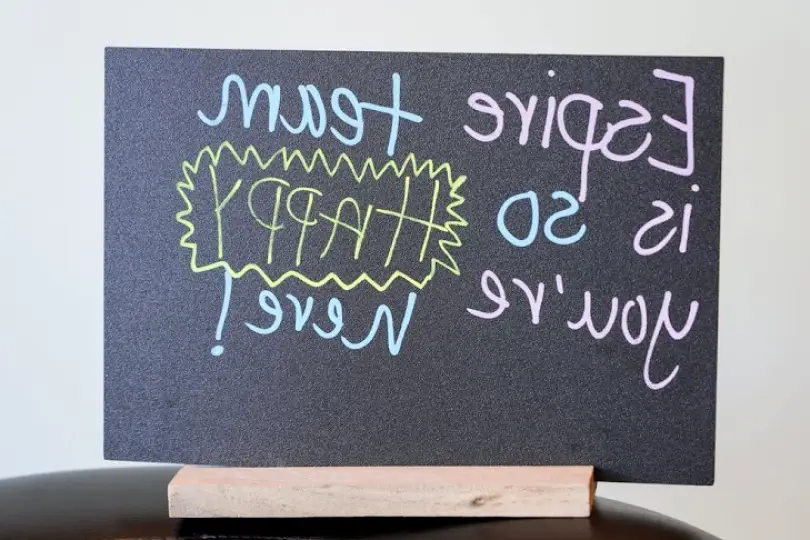 Espire team
is so HAPPY
you're here!